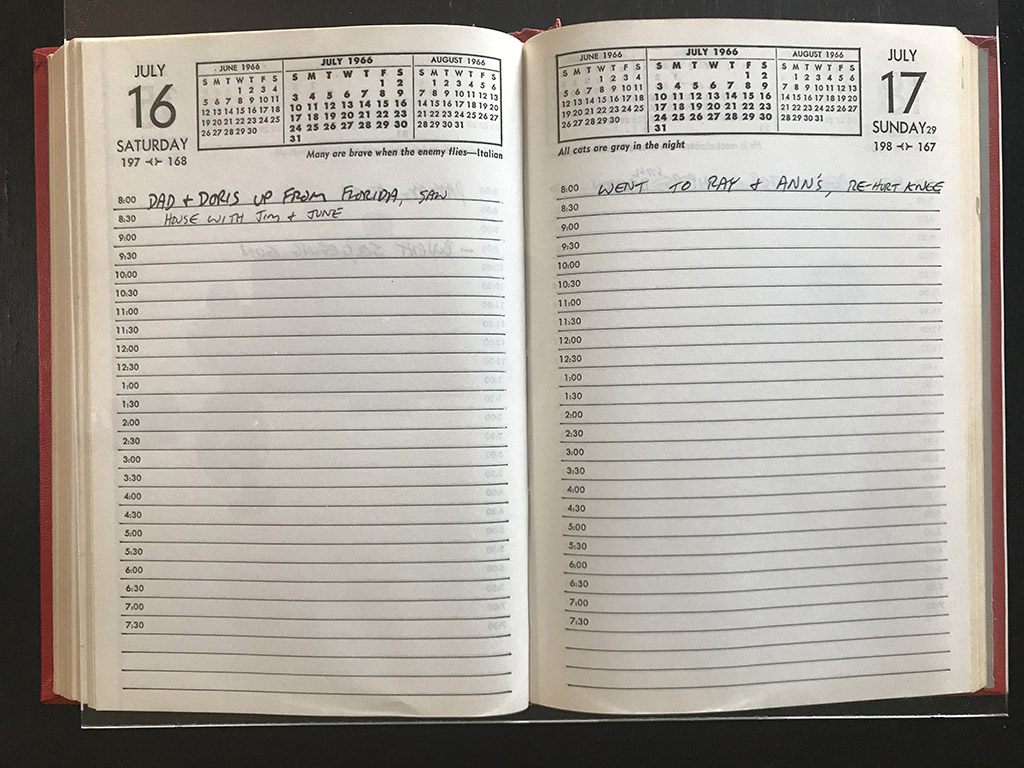 JULY
16
SATURDAY
197 ⤙ 168
JUNE 1966
S M T W T F S
1 2 3 4
5 6 7 8 9 10 11
12 13 14 15 16 17 18
19 20 21 22 23 24 25
26 27 28 29 30
JULY 1966
S M T W T F S
1 2
3 4 5 6 7 8 9
10 11 12 13 14 15 16
17 18 19 20 21 22 23
24 25 26 27 28 29 30
31
AUGUST 1966
S M T W T F S
1 2 3 4 5 6
7 8 9 10 11 12 13
14 15 16 17 18 19 20
21 22 23 24 25 26 27
28 29 30 31
Many are brave when the enemy flies—Italian
8:00 DAD + DORIS UP FROM FLORIDA, SAW
8:30 HOUSE WITH JIM + JUNE
9:00
9:30
10:00
10:30
11:00
11:30
12:00
12:30
1:00
1:30
2:00
2:30
3:00
3:30
4:00
4:30
5:00
5:30
6:00
6:30
7:00
7:30
JUNE 1966
S M T W T F S
1 2 3 4
5 6 7 8 9 10 11
12 13 14 15 16 17 18
19 20 21 22 23 24 25
26 27 28 29 30
JULY 1966
S M T W T F S
1 2
3 4 5 6 7 8 9
10 11 12 13 14 15 16
17 18 19 20 21 22 23
24 25 26 27 28 29 30
31
AUGUST 1966
S M T W T F S
1 2 3 4 5 6
7 8 9 10 11 12 13
14 15 16 17 18 19 20
21 22 23 24 25 26 27
28 29 30 31
JULY
17
SUNDAY 29
198 ⤙ 167
All cats are gray in the night
8:00 WENT TO RAY + ANN'S, RE-HURT KNEE
8:30
9:00
9:30
10:00
10:30
11:00
11:30
12:00
12:30
1:00
1:30
2:00
2:30
3:00
3:30
4:00
4:30
5:00
5:30
6:00
6:30
7:00
7:30